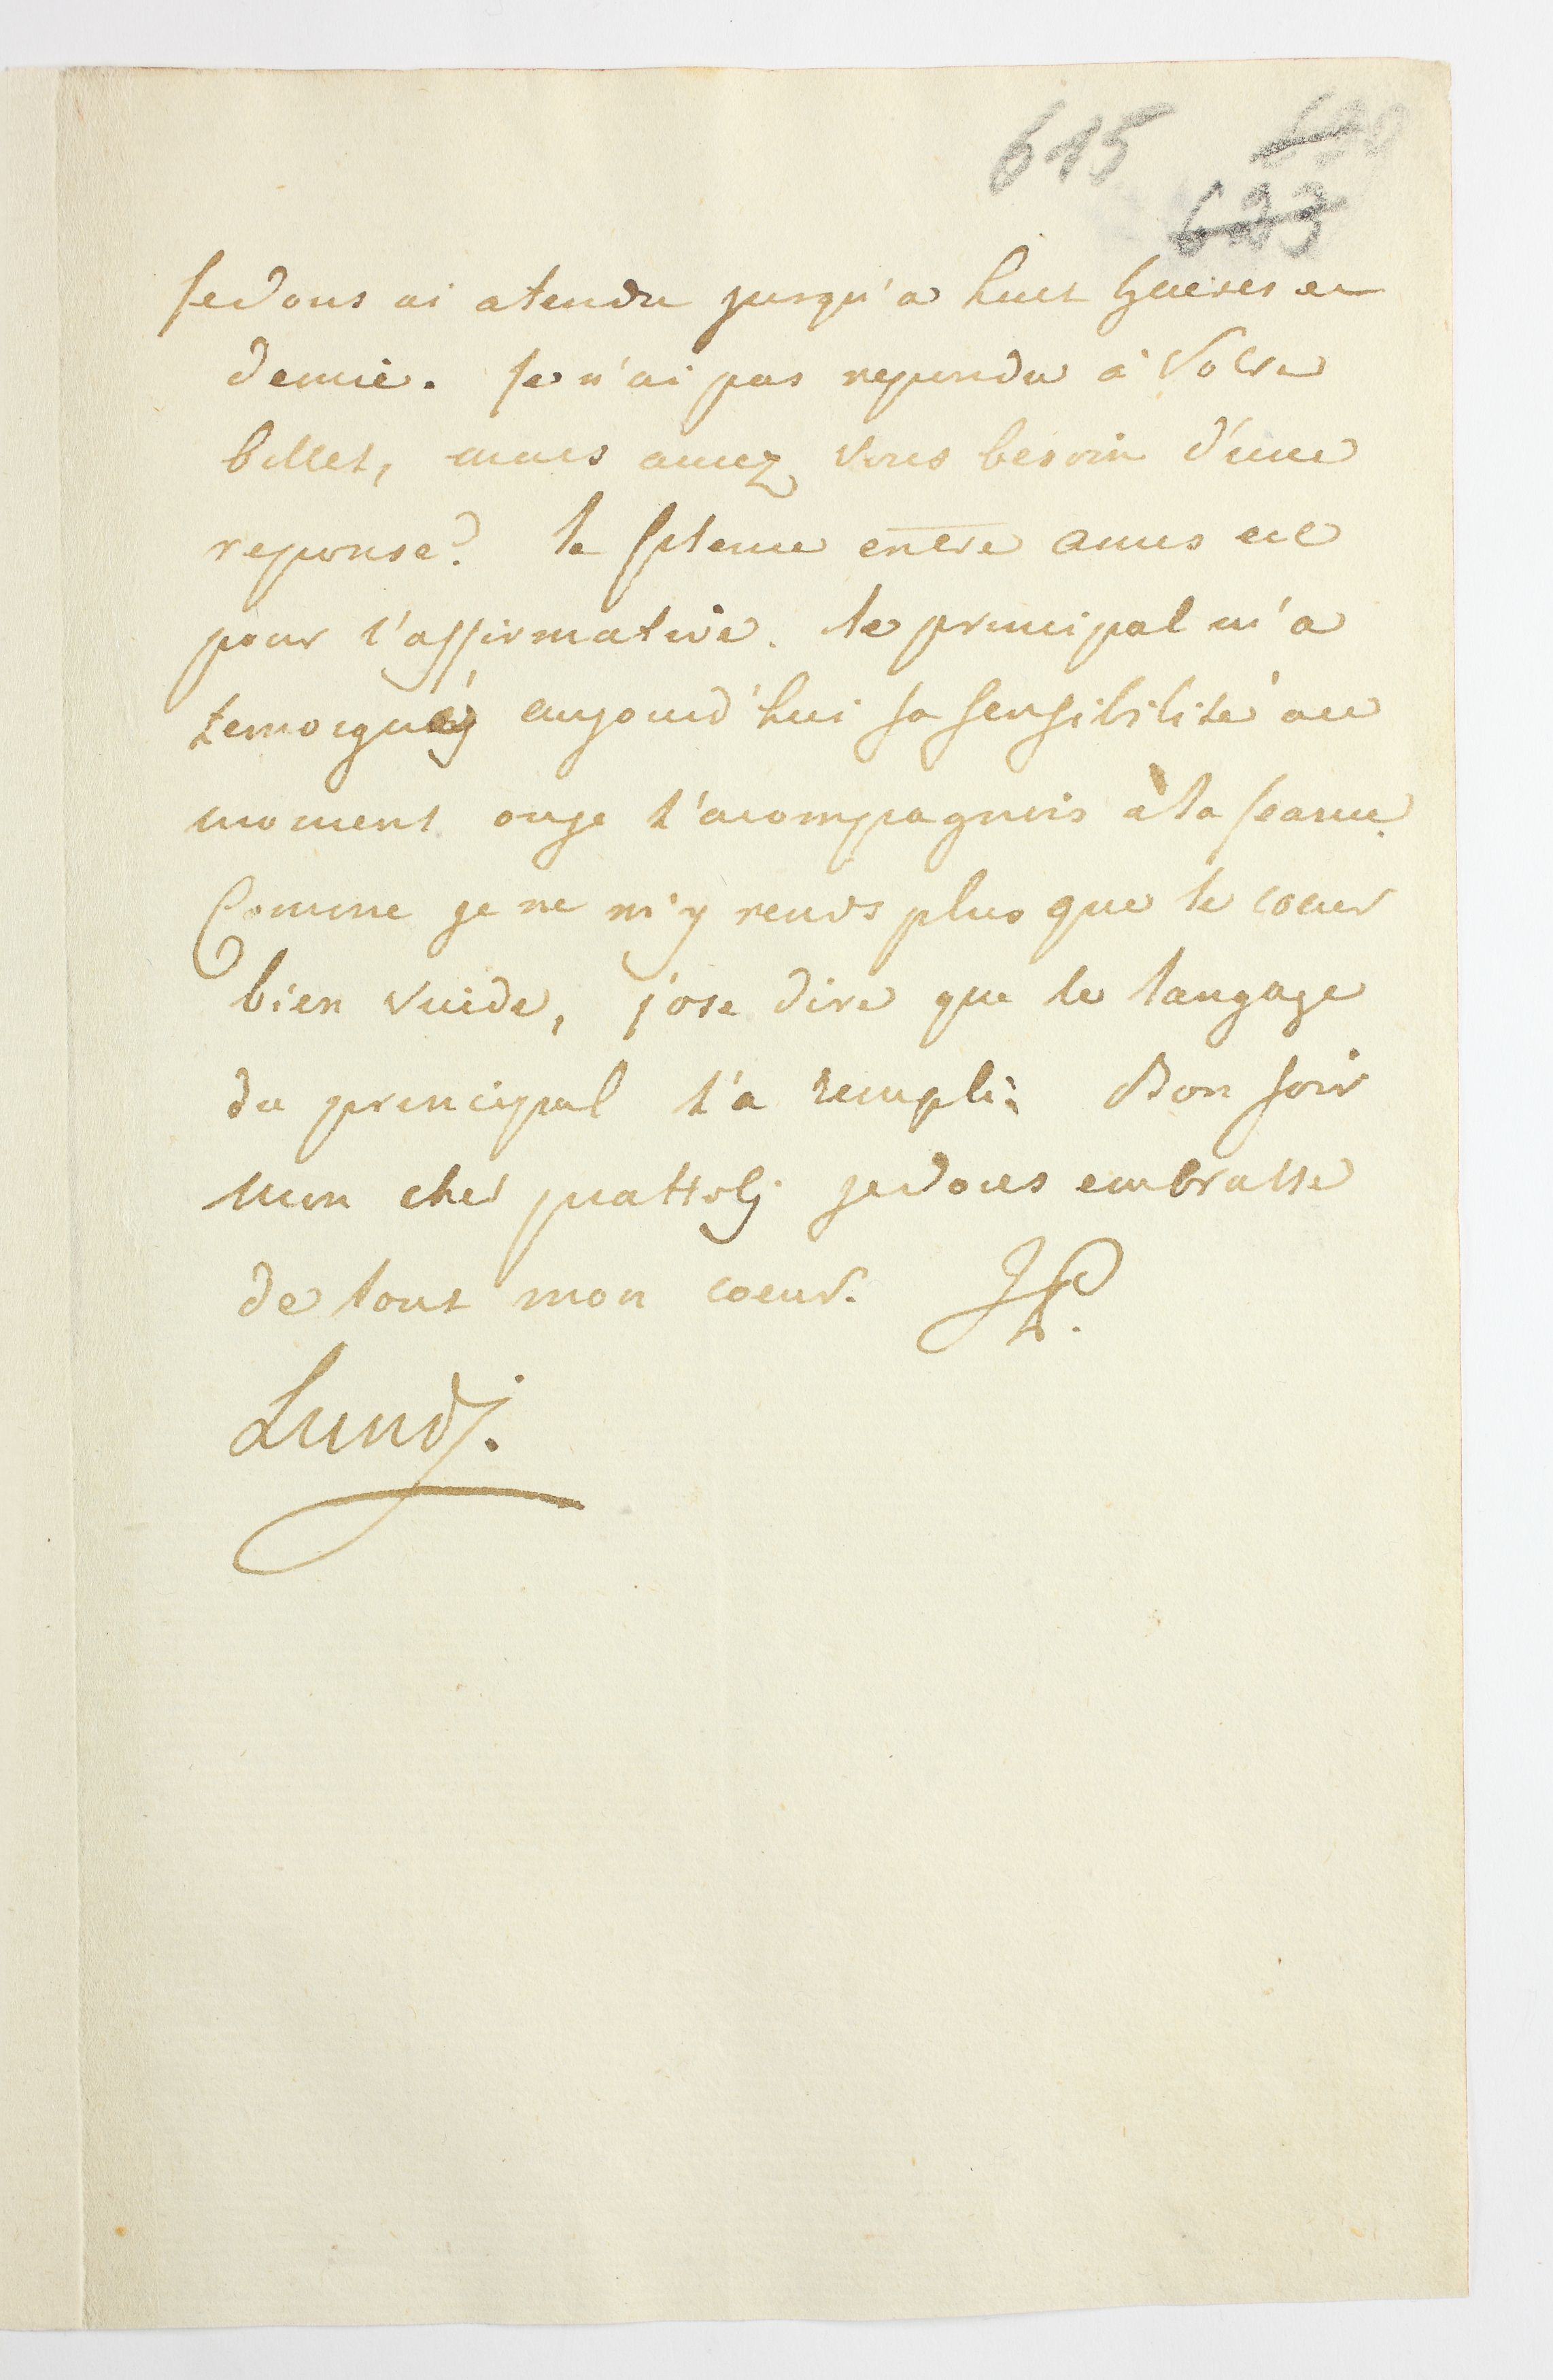 615
623
Je vous ai atendu jusqu'a huit heures et
demie. Je n'ai pas repondu à Votre
billet, mais aviez vous besoin d'une
reponse? le silence entre amis est
pour l'affirmative. le principal m'a
temoigné aujourd'hui sa sensibilité au
moment ou je l'acompagnois à la seance.
Comme je ne m'y rends plus que le coeur
bien vuide, j'ose dire que le langage
du principal l'a rempli. Bon soir
mon cher piattolj je vous embrasse
de tout mon coeur.
Lundj.